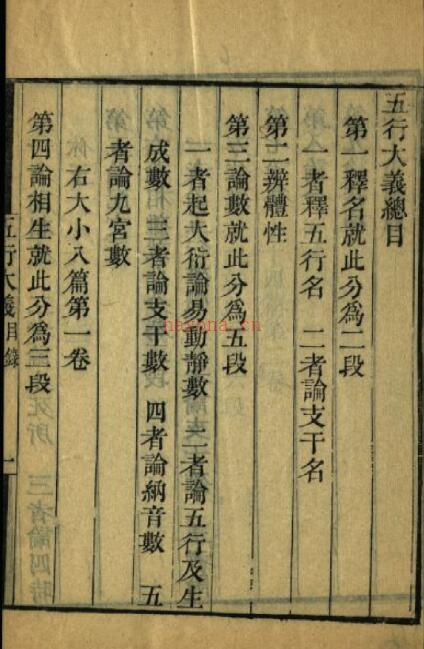 五行大義總目
第一釋名就此分爲二段
一者釋五行名　二者論支干名
第二辨體性
第三論數就此分爲五段
一者起大衍論易動靜數　二者論五行及生
成數　三者論支干數　四者論納音數　五
者論九宮數
右大小八篇第一卷
第四論相生就此分爲三段
五行大義目錄
一